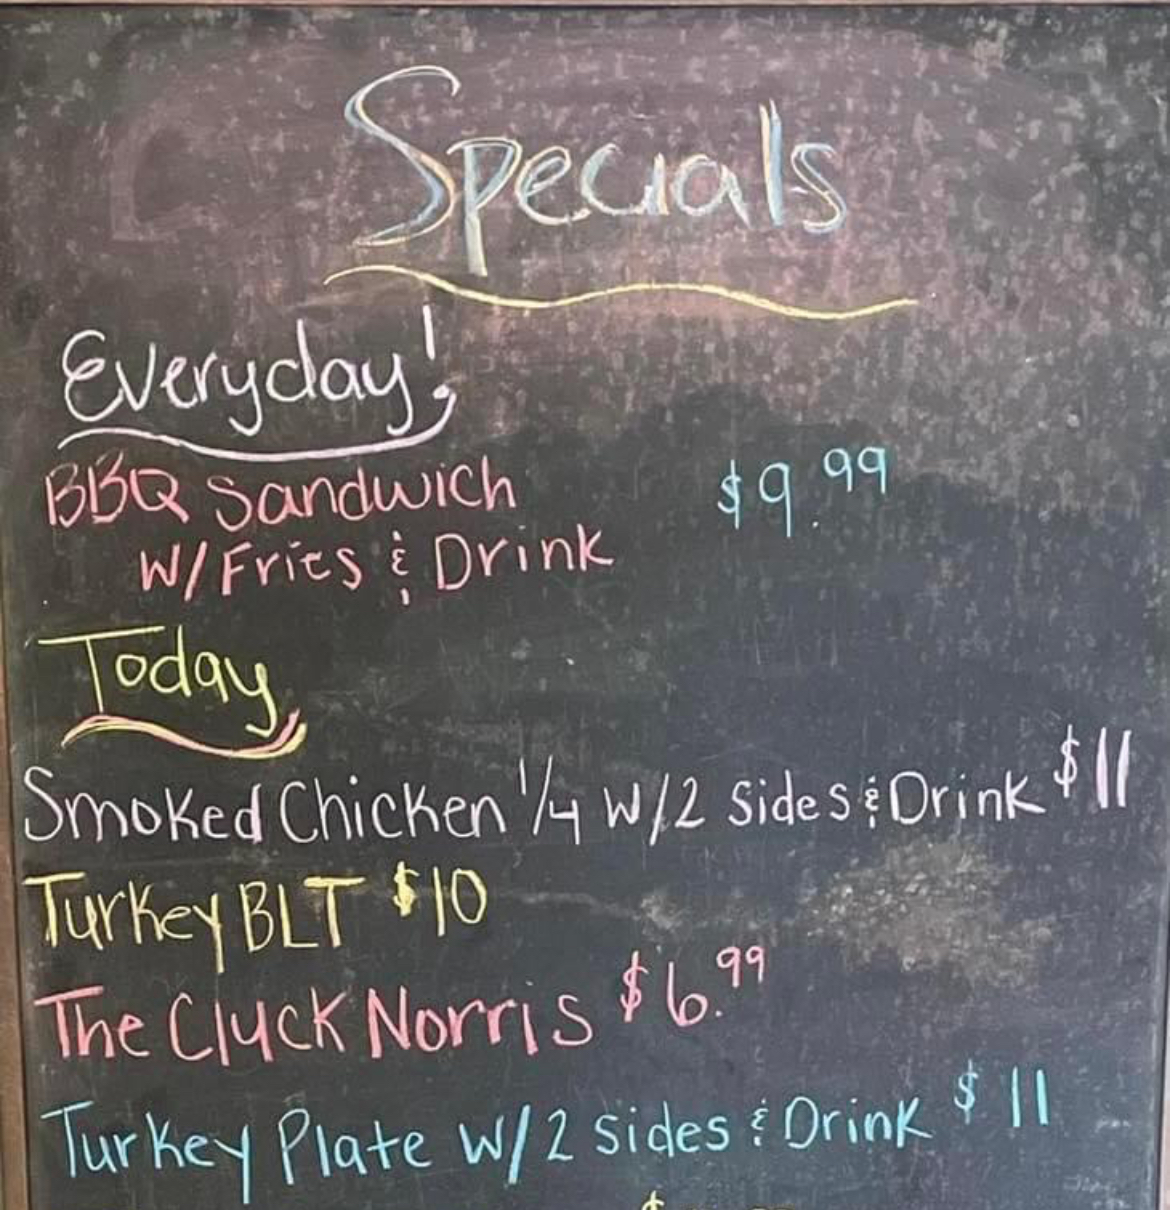 Specials
Everyday!
BBQ Sandwich $9.99
W/Fries & Drink
Today
Smoked Chicken 1/4 W/2 Sides & Drink $11
Turkey BLT $10
The Cluck Norris $6.99
Turkey Plate W/2 Sides & Drink $11
$